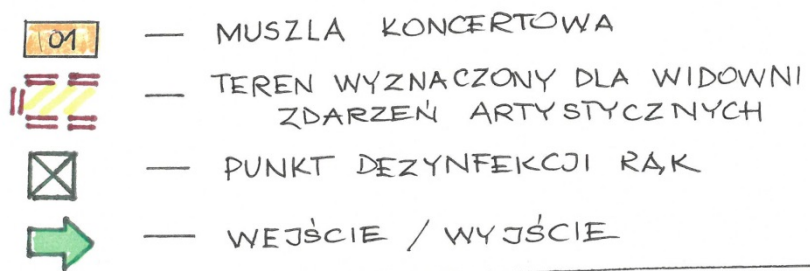 01 — MUSZLA KONCERTOWA
— TEREN WYZNACZONY DLA WIDOWNI
ZDARZEŃ ARTYSTYCZNYCH
— PUNKT DEZYNFEKCJI RĄK
— WEJŚCIE / WYJŚCIE